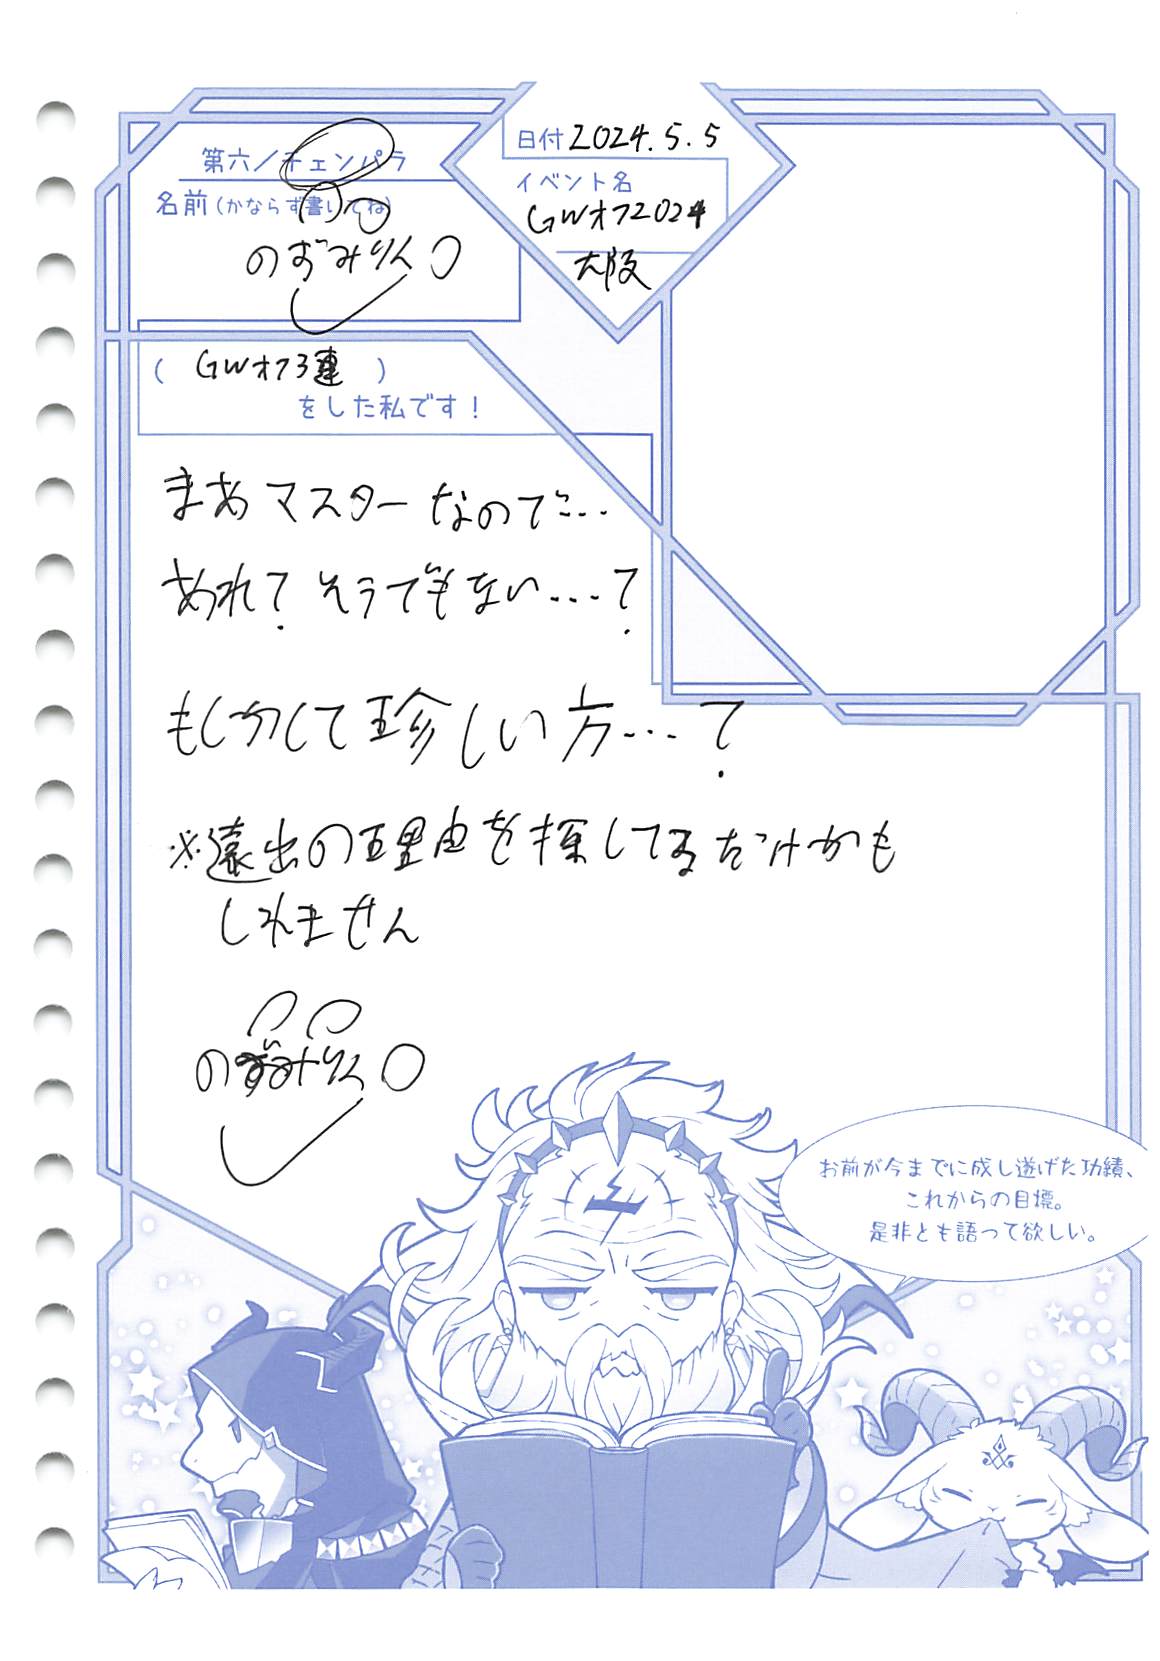 第六/チェンパラ
名前(かならず書いてね)
のずみりん
日付 2024.5.5
イベント名
GWオフ2024
大阪
( GWオフ3連 )
をした私です!
まあマスターなので…
あれ?そうでもない…?
もしかして珍しい方…?
※遠出の理由を探してるだけかも
しれません
のずみりん
お前が今までに成し遂げた功績、
これからの目標。
是非とも語って欲しい。